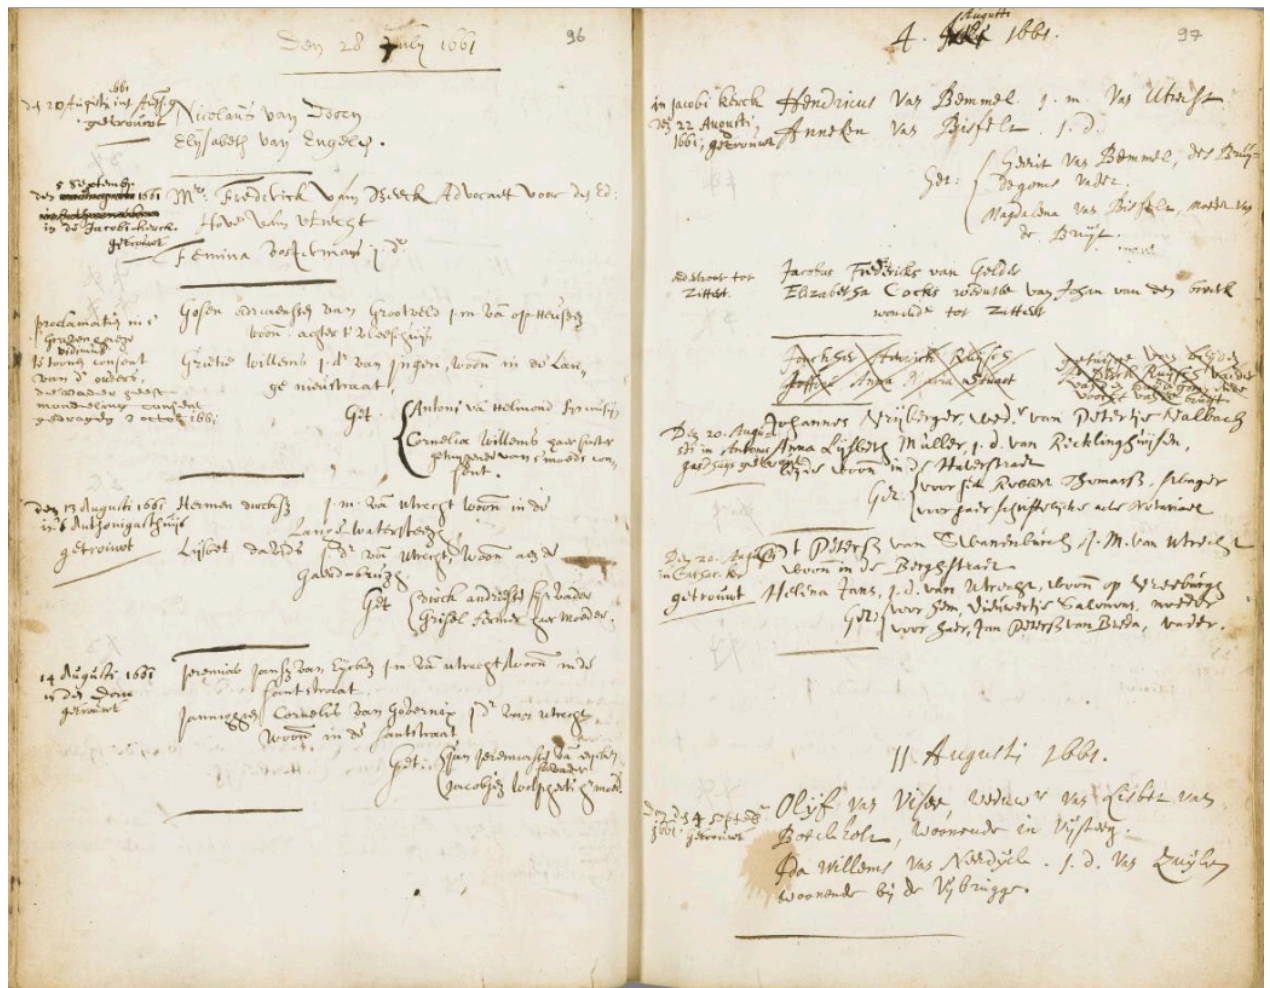 96
Den 28 July 1661
1661
getrouwt
Nicolaus van Doorn
Elysabeth van Engelen.
5 Septemb.
den 1661
in de Jacobi kerck.
getrouwt
Mr. Frederick van Advocaet voor den Ed:
Hove van Utrecht
Femina j. dr
proclamatien in s'
Gravenhage
te toonen consent
van d' ouders,
de vader heeft
mondeling consent
gedragen 2 octob 1661
Gosen van Grootveld j.m. van op Heusden
woon. achter t' vleeshuijs
Grietie Willems j. dr van Jngen, woon in de Lan-
ge nieustraat
Get. Antoni van Helmond
Cornelia Willems haer suster
getuigende van s'moeders con-
sent.
den 13 Augusti 1661
in S Anthonigasthuijs
getrouwt
Hermen dircksz j.m. van Utrecht woon in de
Lange Watersteegh
Lijsbet davids j. dr van Utrecht, woon aen de
Gaerd-brugge
Get Dirck andriesse sijn vader
Grisel haer moeder.
14 Augusti 1661
in den Dom
getrouwt
Jeremias Jansz van Eycken j.m. van Utrecht, woon in de
Santstraat
Jannegen Cornelis van Governip j. dr van Utrecht
woon in de Santstraat
Get: Jan Jeremiasz van Eycken
Jacobjen
97
Augusti
4. 1661.
in Jacobi kerck
den 22 Augusti
1661, getrouwt
Hendricus van Bemmel. j. m. van Utrecht
Anneken van Bisfelt. j. d.
Get: Gerrit van Bemmel, des Bruy-
degoms vader.
Magdalena van Bisfelt, moeder van
de Bruyt.
tot
Zittert.
Jacobus Fredericks van Gelder
Elizabetha Cocks weduwe van Johan van den
wonende tot Zittert
Joncheer Ruijsch
Joffre Anna Maria Stuart
Den 20. Augus-
sti in Antonis
gasthuys getrouwt
Johannes Vrijberger, wedr van Petertje Valbach
Anna Lijsbeth Muller, j. d. van Recklinghuijsen,
beyde woon in de Haverstraet
Get: voor hem Robbert Thomasz, swager
voor haer schriftelijcke acte Notariael
Den 20. August
in Cathar. ker
getrouwt
Petersz van Swanenburch j. M. van Utrecht
woon in de Berghstraet
Helena Jans, j.d. van Utrecht, woon op Vreeburgh
Get: voor hem, Dieuwertje Salomons, moeder
voor haer, Jan Petersz van Breda, vader.
11 Augusti 1661.
den 4 Septemb.
1661. getrouwt
Olijf van Viset, weduwr van Lisbet van
Boeckholt, woonende in Vijsteeg.
Ida Willems van Nordijck. j. d. van Zuijlen
woonende bij de Vijbrugge.